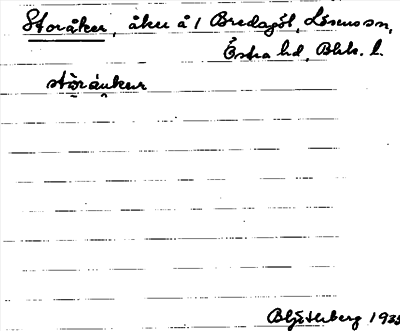 Storåker, åker å 1 Bredagöl, Lösens sn,
Östra hd, Blek. l.
stóràuker
Blysterberg 1935